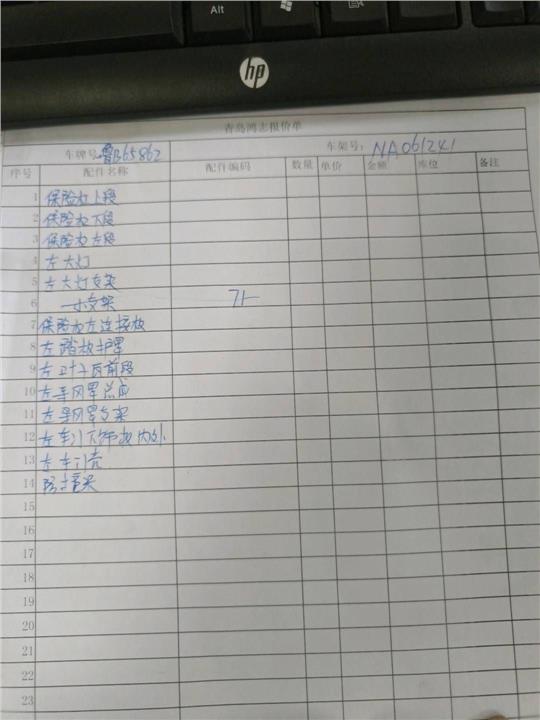 Alt
hp
青岛鸿志报价单
车牌号:鲁B65862 车架号: NA061241
序号 配件名称 配件编码 数量 单价 金额 库位 备注
1 保险杠上段
2 保险杠下段
3 保险杠左段
4 左大灯
5 左大灯支架
6 一小支架 7个
7 保险杠左连接板
8 左踏板护罩
9 左叶子瓦前段
10 左导风罩总成
11 左导风罩支架
12 左车门下饰板内外
13 左车门壳
14 防撞梁
15
16
17
18
19
20
21
22
23